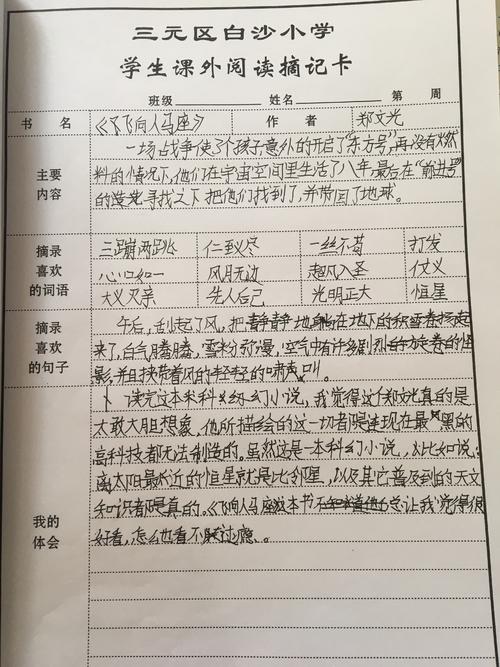 三元区白沙小学
学生课外阅读摘记卡
班级 姓名 第 周
书名 《飞向人马座》 作者 郑文光
主要内容
一场战争使3个孩子意外的开启了"东方号",再没有燃
料的情况下,他们在宇宙空间里生活了八年,最后在"前进号"
的 寻找之下把他们找到了,并带回了地球。
摘录喜欢的词语
三蹦两跳 仁至义尽 一丝不苟 打发
心口如一 风月无边 超凡入圣 仗义
大义灭亲 先人后己 光明正大 恒星
摘录喜欢的句子
午后,刮起了风,把静静地躺在地下的积雪卷扬起
来了,白气腾腾,雪粉弥漫,空气中有许多剧烈 旋卷的怪
影,并且挟带着风的轻轻的啸声。
我的体会
读完这本科幻小说,我觉得这个郑文 真的是
太敢大胆想象,他所描绘的这一切都是连现在最 的
高科技都无法制造的。虽然这是一本科幻小说,
离太阳最近的恒星就是比邻星,以及其它普及到的天文
知识都是真的。《飞向人马座》这本书 让我觉得很
好看,怎么也看不 过瘾。